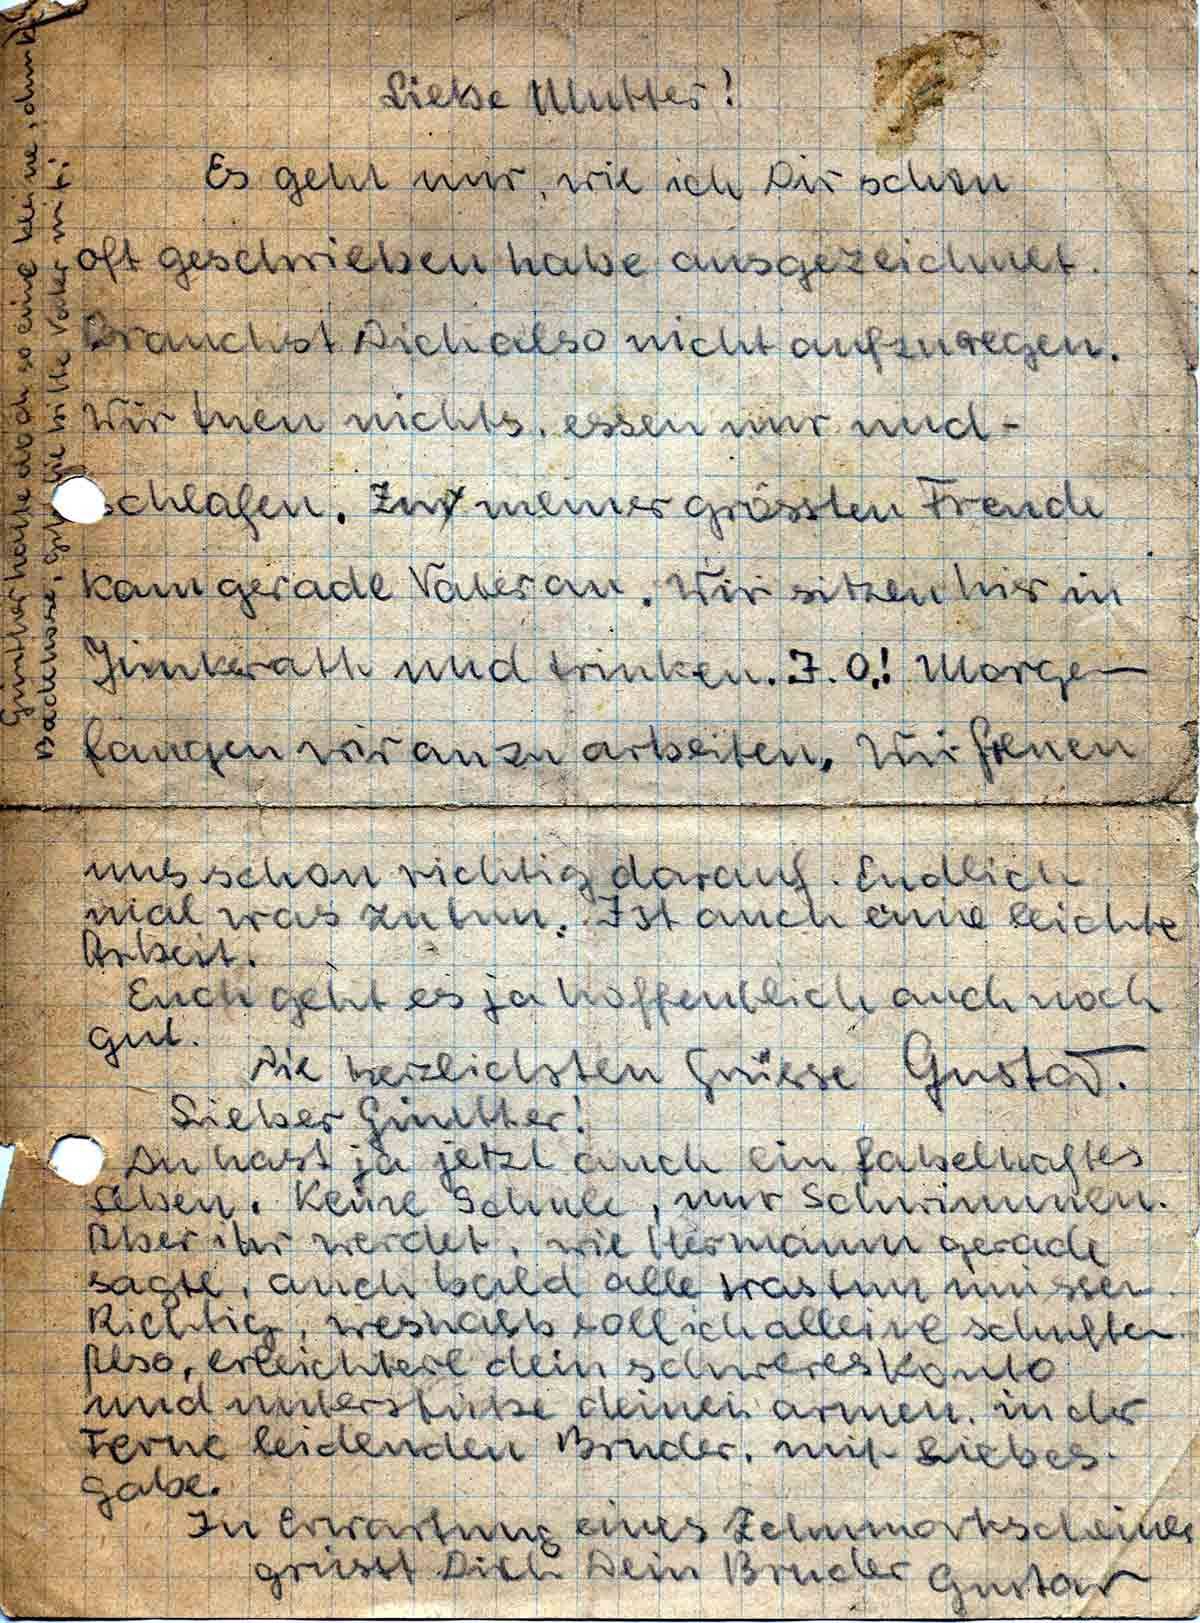 Liebe Mutter!
Es geht mir, wie ich Dir schon
oft geschrieben habe ausgezeichnet.
Brauchst Dich also nicht aufzuregen.
Wir tuen nichts, essen nur und-
schlafen. Zu meiner grössten Freude
kam gerade Vater an. Wir sitzen hier in
Jünkerath und trinken. J. O.! Morgen
fangen wir an zu arbeiten. Wir freuen
uns schon richtig darauf. Endlich
mal was zu tun. Ist auch eine leichte
Arbeit.
Euch geht es ja hoffentlich auch noch
gut.
Die herzlichsten Grüsse Gustav.
Lieber Günther!
Du hast ja jetzt auch ein fabelhaftes
Leben. Keine Schule, nur Schwimmen.
Aber ihr werdet, wie Hermann gerade
sagte, auch bald alle was tun müssen.
Richtig, weshalb soll ich alleine schuften.
Also, erleichtere dein schweres Konto
und unterstütze deinen armen, in der
Ferne leidenden Bruder, mit Liebes-
gabe.
In Erwartung eines Zehnmarkscheines
grüsst Dich Dein Bruder Gustav
Günther hatte doch so eine kleine, dunkle
Badehose, gib sie bitte Vater mit!